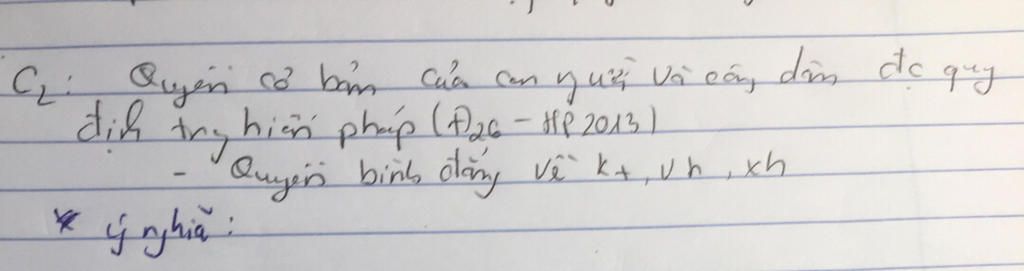 C2: Quyền cơ bản của con người và công dân đc quy
định trg hiến pháp (Đ26 - HP 2013)
- Quyền bình đẳng về kt, vh, xh
* ý nghĩa: